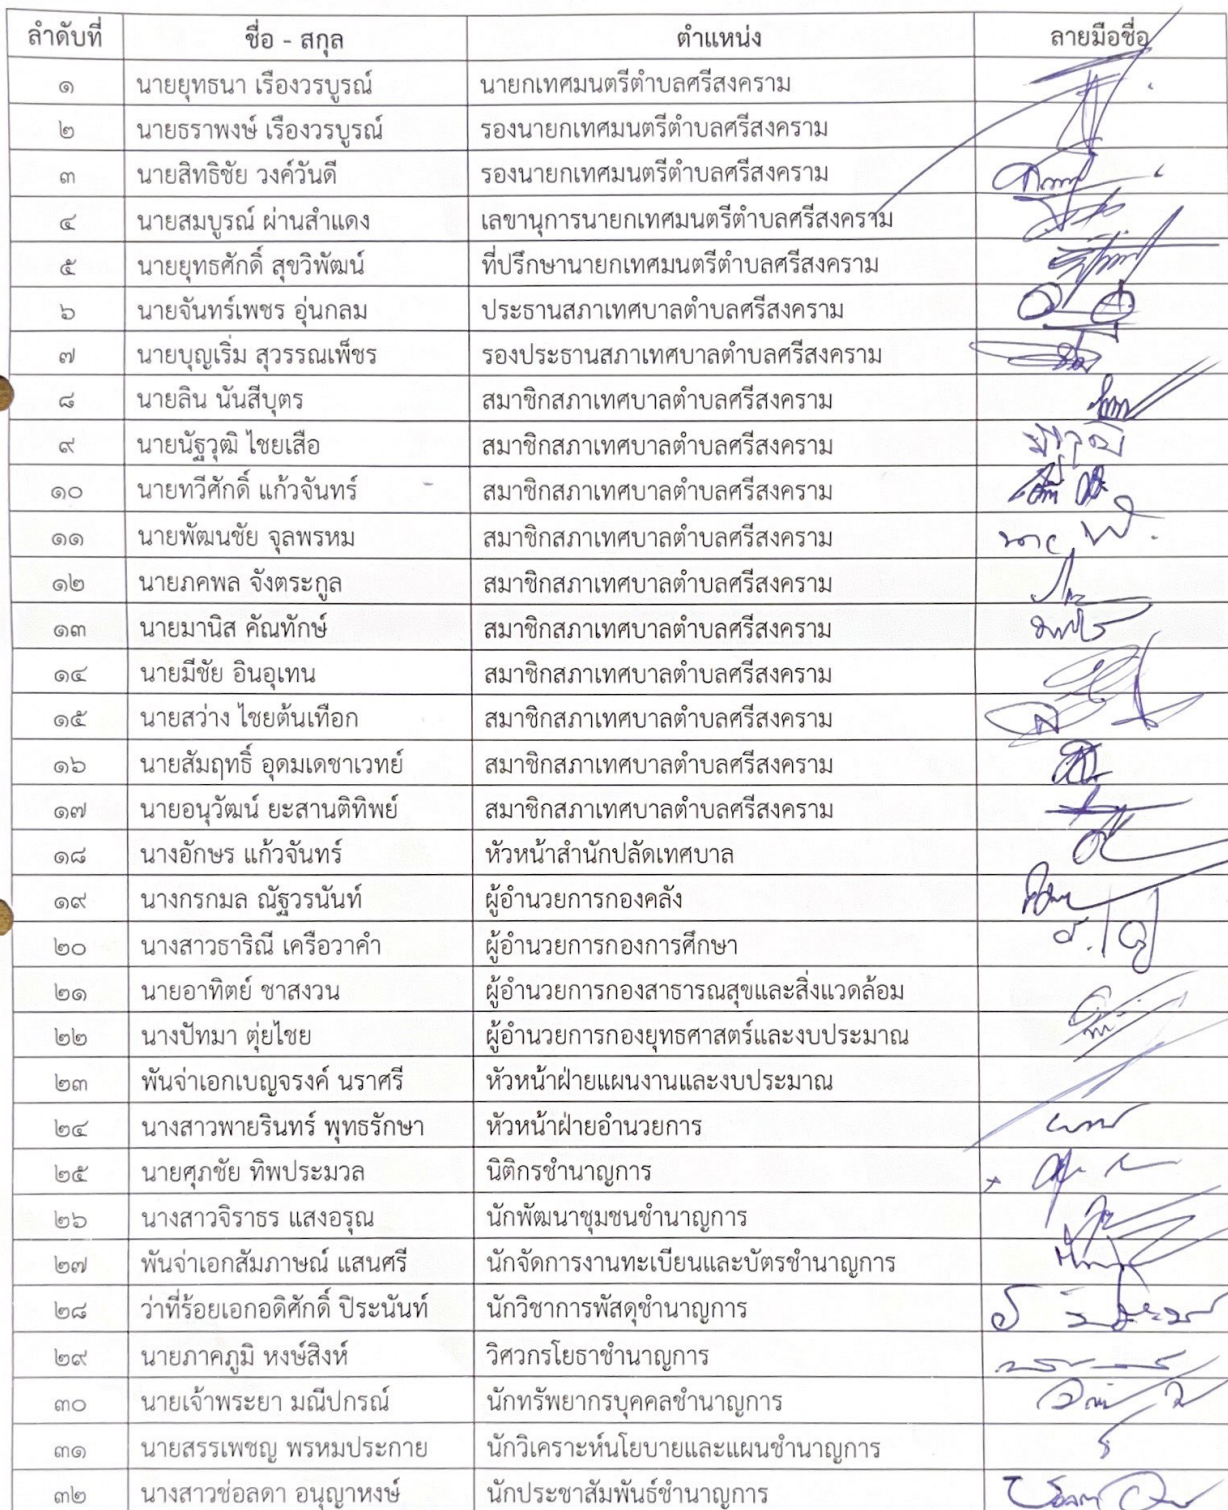 ลำดับที่ ชื่อ - สกุล ตำแหน่ง ลายมือชื่อ
๑ นายยุทธนา เรืองวรบูรณ์ นายกเทศมนตรีตำบลศรีสงคราม
๒ นายธราพงษ์ เรืองวรบูรณ์ รองนายกเทศมนตรีตำบลศรีสงคราม
๓ นายสิทธิชัย วงค์วันดี รองนายกเทศมนตรีตำบลศรีสงคราม
๔ นายสมบูรณ์ ผ่านสำแดง เลขานุการนายกเทศมนตรีตำบลศรีสงคราม
๕ นายยุทธศักดิ์ สุขวิพัฒน์ ที่ปรึกษานายกเทศมนตรีตำบลศรีสงคราม
๖ นายจันทร์เพชร อุ่นกลม ประธานสภาเทศบาลตำบลศรีสงคราม
๗ นายบุญเริ่ม สุวรรณเพ็ชร รองประธานสภาเทศบาลตำบลศรีสงคราม
๘ นายลิน นันสีบุตร สมาชิกสภาเทศบาลตำบลศรีสงคราม
๙ นายนัฐวุฒิ ไชยเสือ สมาชิกสภาเทศบาลตำบลศรีสงคราม
๑๐ นายทวีศักดิ์ แก้วจันทร์ สมาชิกสภาเทศบาลตำบลศรีสงคราม
๑๑ นายพัฒนชัย จุลพรหม สมาชิกสภาเทศบาลตำบลศรีสงคราม
๑๒ นายภคพล จังตระกูล สมาชิกสภาเทศบาลตำบลศรีสงคราม
๑๓ นายมานิส คัณทักษ์ สมาชิกสภาเทศบาลตำบลศรีสงคราม
๑๔ นายมีชัย อินอุเทน สมาชิกสภาเทศบาลตำบลศรีสงคราม
๑๕ นายสว่าง ไชยต้นเทือก สมาชิกสภาเทศบาลตำบลศรีสงคราม
๑๖ นายสัมฤทธิ์ อุดมเดชาเวทย์ สมาชิกสภาเทศบาลตำบลศรีสงคราม
๑๗ นายอนุวัฒน์ ยะสานติทิพย์ สมาชิกสภาเทศบาลตำบลศรีสงคราม
๑๘ นางอักษร แก้วจันทร์ หัวหน้าสำนักปลัดเทศบาล
๑๙ นางกรกมล ณัฐวรนันท์ ผู้อำนวยการกองคลัง
๒๐ นางสาวธาริณี เครือวาคำ ผู้อำนวยการกองการศึกษา
๒๑ นายอาทิตย์ ชาสงวน ผู้อำนวยการกองสาธารณสุขและสิ่งแวดล้อม
๒๒ นางปัทมา ตุ่ยไชย ผู้อำนวยการกองยุทธศาสตร์และงบประมาณ
๒๓ พันจ่าเอกเบญจรงค์ นราศรี หัวหน้าฝ่ายแผนงานและงบประมาณ
๒๔ นางสาวพายรินทร์ พุทธรักษา หัวหน้าฝ่ายอำนวยการ
๒๕ นายศุภชัย ทิพประมวล นิติกรชำนาญการ
๒๖ นางสาวจิราธร แสงอรุณ นักพัฒนาชุมชนชำนาญการ
๒๗ พันจ่าเอกสัมภาษณ์ แสนศรี นักจัดการงานทะเบียนและบัตรชำนาญการ
๒๘ ว่าที่ร้อยเอกอดิศักดิ์ ปิระนันท์ นักวิชาการพัสดุชำนาญการ
๒๙ นายภาคภูมิ หงษ์สิงห์ วิศวกรโยธาชำนาญการ
๓๐ นายเจ้าพระยา มณีปกรณ์ นักทรัพยากรบุคคลชำนาญการ
๓๑ นายสรรเพชญ พรหมประกาย นักวิเคราะห์นโยบายและแผนชำนาญการ
๓๒ นางสาวช่อลดา อนุญาหงษ์ นักประชาสัมพันธ์ชำนาญการ